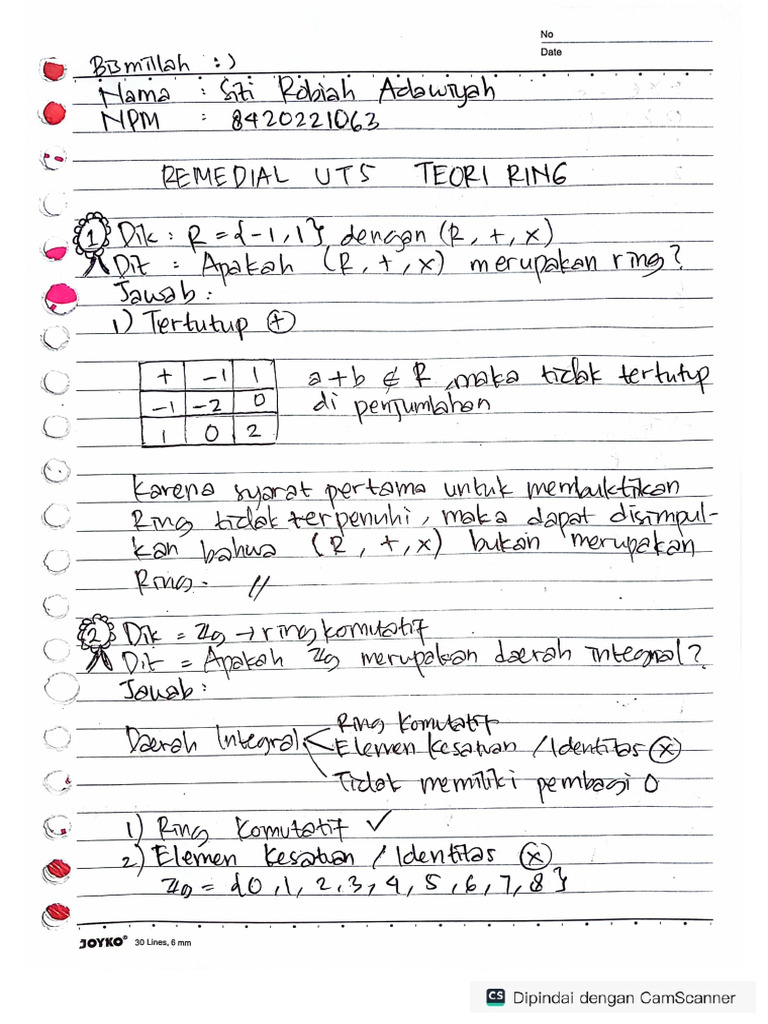 No
Date
Bismillah :)
Nama : Siti Robiah Adawiyah
NPM : 8420221063
REMEDIAL UTS TEORI RING
1 Dik : R = {-1, 1}, dengan (R, +, x)
Dit : Apakah (R, +, x) merupakan ring?
Jawab :
1) Tertutup (+)
+ -1 1
-1 -2 0
1 0 2
a + b ∉ R, maka tidak tertutup
di penjumlahan
Karena syarat pertama untuk membuktikan
Ring tidak terpenuhi, maka dapat disimpul-
kan bahwa (R, +, x) bukan merupakan
Ring. //
2 Dik = ℤ9 → ring komutatif
Dit = Apakah ℤ9 merupakan daerah integral?
Jawab :
Daerah Integral
Ring Komutatif
Elemen Kesatuan / Identitas (x)
Tidak memiliki pembagi 0
1) Ring Komutatif ✓
2) Elemen Kesatuan / Identitas (x)
ℤ9 = {0, 1, 2, 3, 4, 5, 6, 7, 8}
JOYKO® 30 Lines, 6 mm
CS Dipindai dengan CamScanner